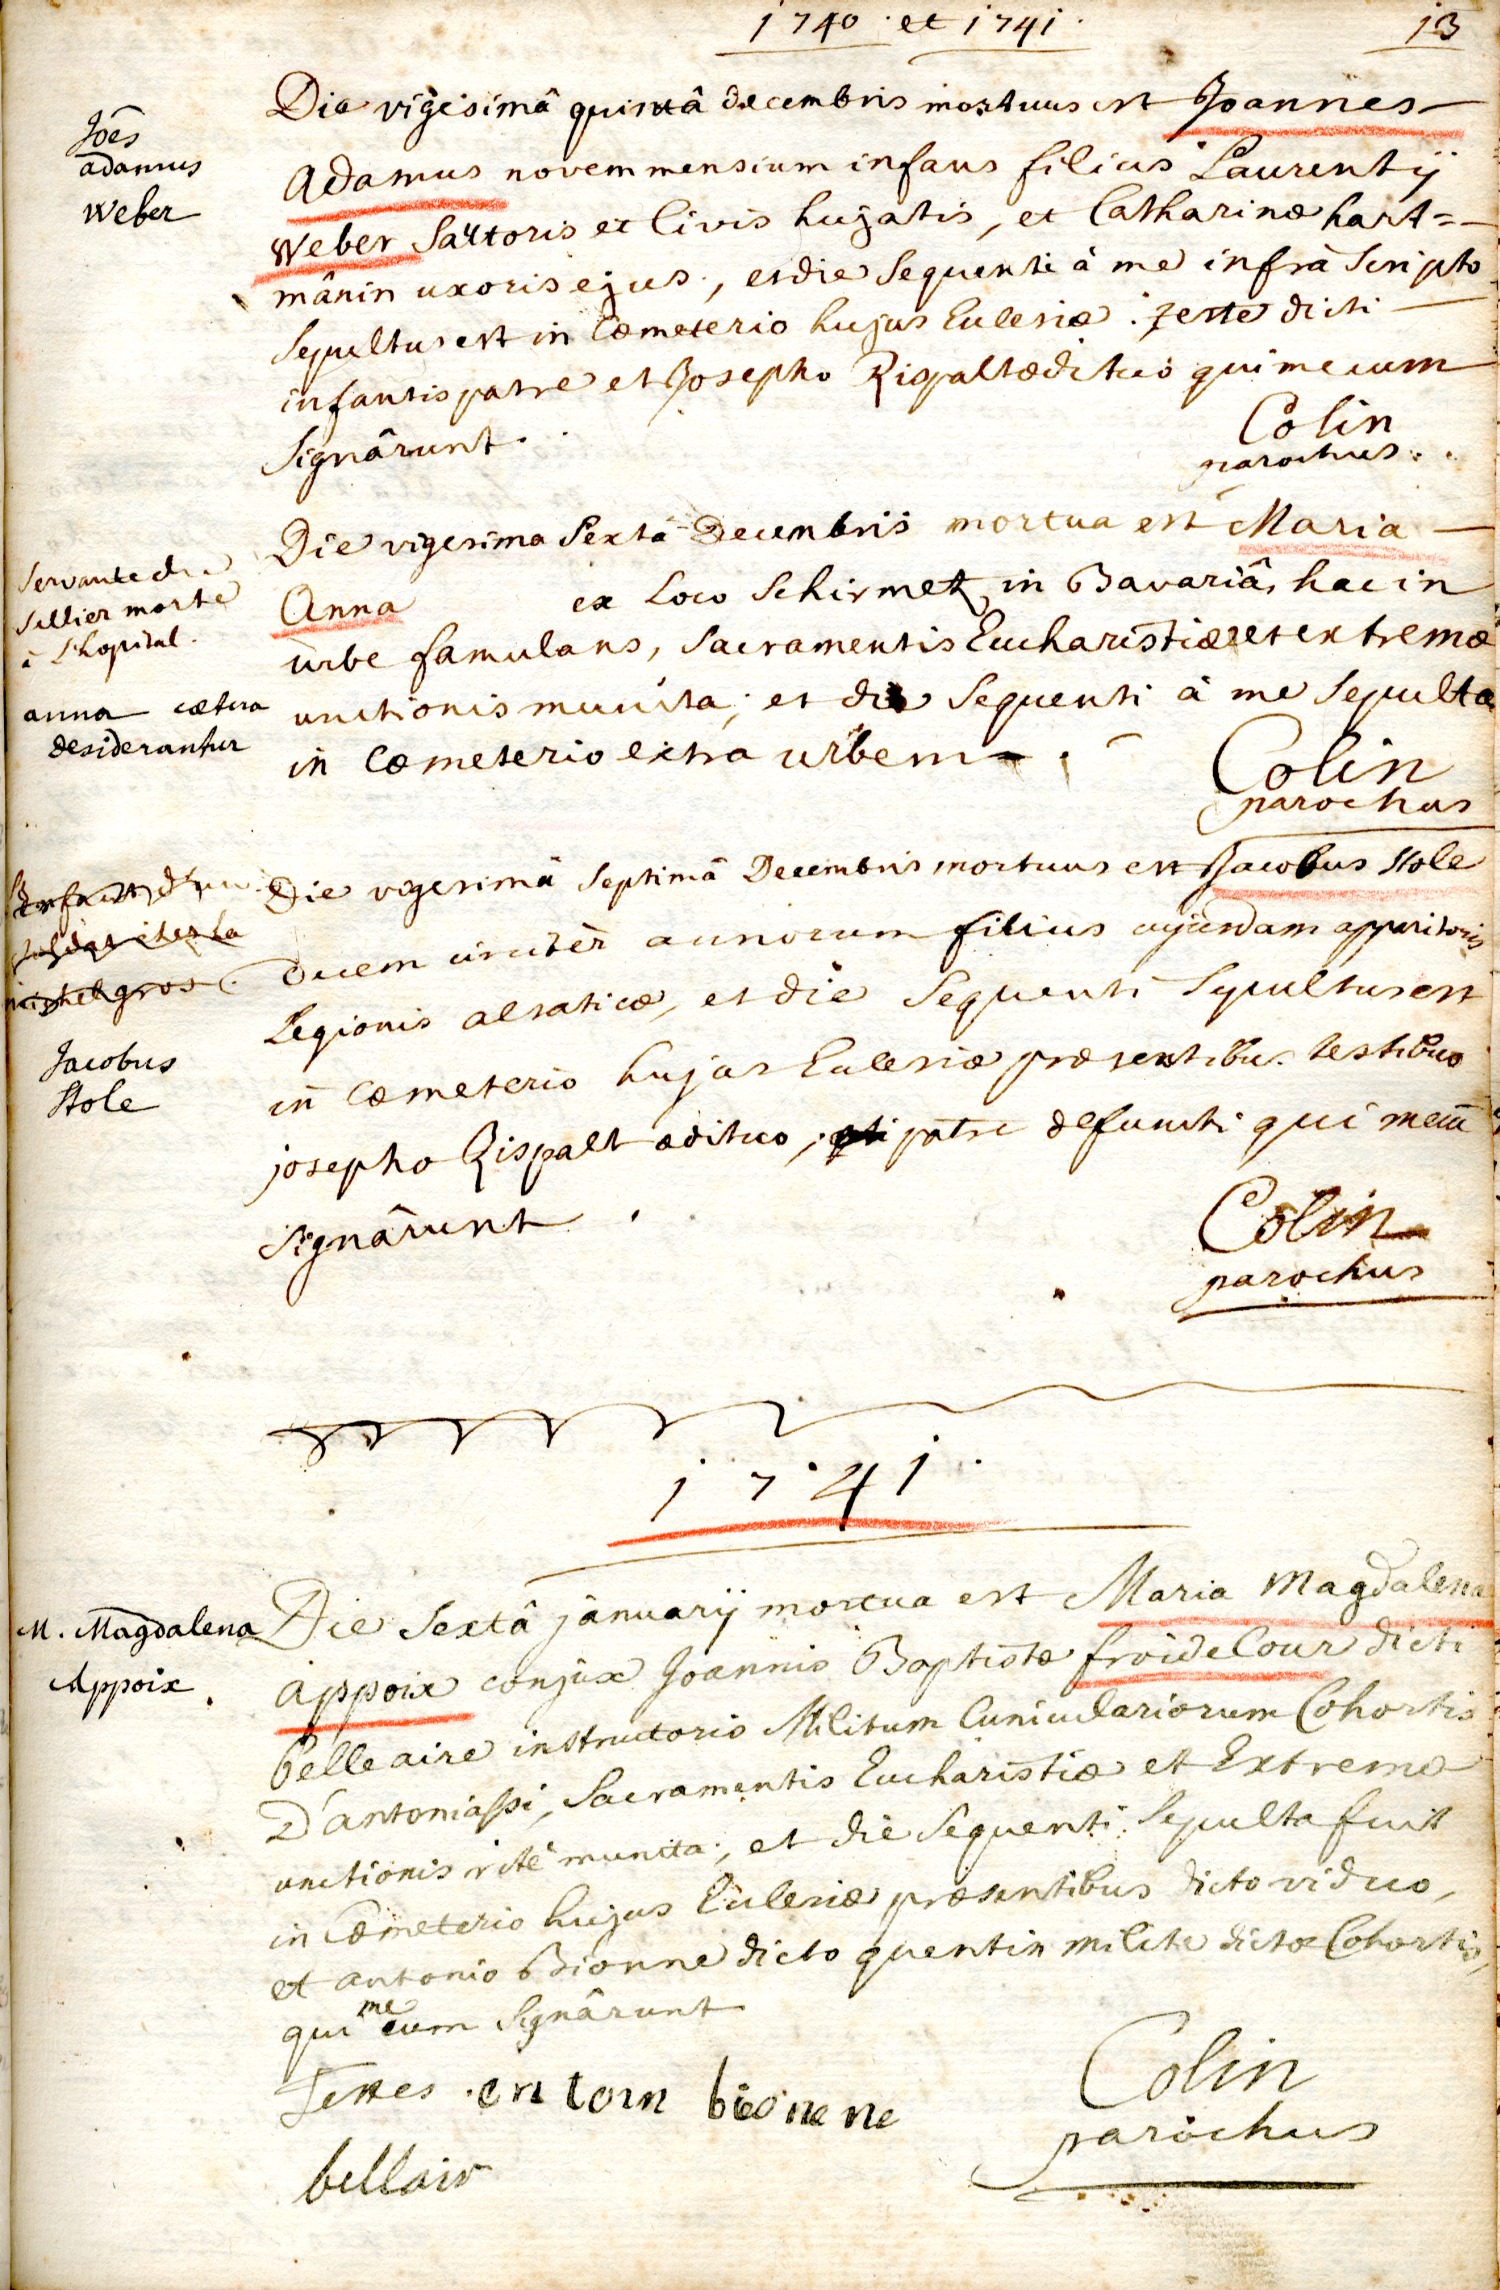 1740 et 1741.
13
Joês
adamus
weber
Die vigesimâ quintâ decembris mortuus est Joannes
Adamus novem mensium infans filius Laurentij
Weber Sartoris et Civis hujatis, et Catharinæ hart=
mânin uxoris ejus, et die sequenti à me infrà scripto
Sepultus est in Cœmeterio hujus Ecclesiæ. teste dicti
infantis patre et Josepho Rispalt ædituo qui mecum
signârunt.
Colin
parochus.
servante du
sellier morte
à l'hopital.
anna cætera
desiderantur
Die vigesima Sextâ Decembris mortua est Maria
Anna ex Loco Schirmetz in Bavariâ, hac in
urbe famulans, Sacramentis Eucharistiæ et extremæ
unctionis munita, et die sequenti à me sepulta
in Cœmeterio extra urbem.
Colin
parochus
michel gros
Jacobus
Stole
Die vigesimâ septimâ Decembris mortuus est Jacobus Stole
decem circitèr annorum filius cujusdam apparitoris
Legionis alsaticæ, et die sequenti Sepultus est
in Cœmeterio hujus Ecclesiæ præsentibus testibus
josepho Rispalt ædituo, patre defuncti qui mecū
signârunt.
Colin
parochus
1741.
M. Magdalena
Appoix.
Die Sextâ januarij mortua est Maria Magdalena
appoix conjux Joannis Baptistæ froidecour dicti
belleaire instructoris Militum Cuniculariorum Cohortis
D'antoniassi, Sacramentis Eucharistiæ et Extremæ
unctionis ritè munita, et die sequenti Sepulta fuit
in Cœmeterio hujus Ecclesiæ præsentibus dicto viduo,
et antonio Bionne dicto quentin milite dictæ Cohortis,
qui mecum signârunt
Testes. entoin bionene
bellair
Colin
parochus